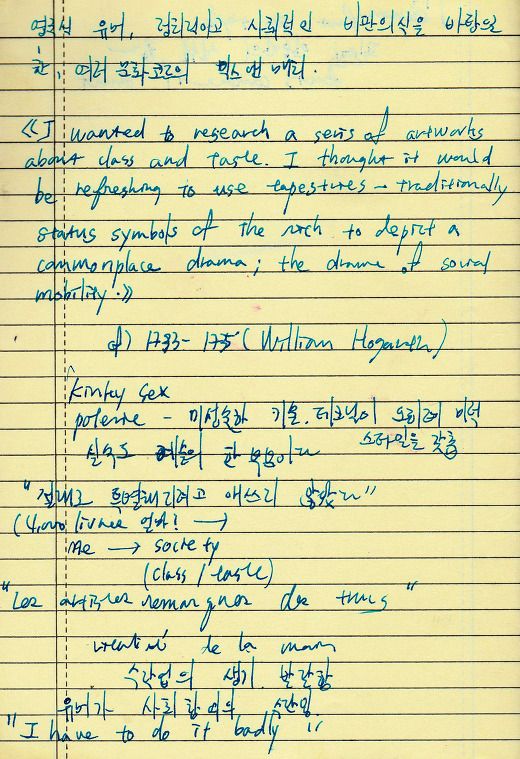 영국식 유머, 컬러링이고 사회적인 비관의식을 바탕으
로 한, 여러 문화코드의 믹스 앤 매치.
《I wanted to research a seris of artworks
about class and taste. I thought it would
be refreshing to use tapestures – traditionally
status symbols of the rich to depict a
commonplace drama; the drama of social
mobility.》
1733- (William Hogarth)
kinky sex
poterie - 미성숙한 기술. 테크닉이 오히려 미적
스타일을 갖춤
실수도 예술의 한 부분이다
"절대로 특별해지려고 애쓰지 않았다"
(4,000 →
me → society
(class / taste)
"Les artistes des trucs"
de la main
수작업의 생기 발랄함
유머가 사회참여의 수단임.
"I have to do it badly"